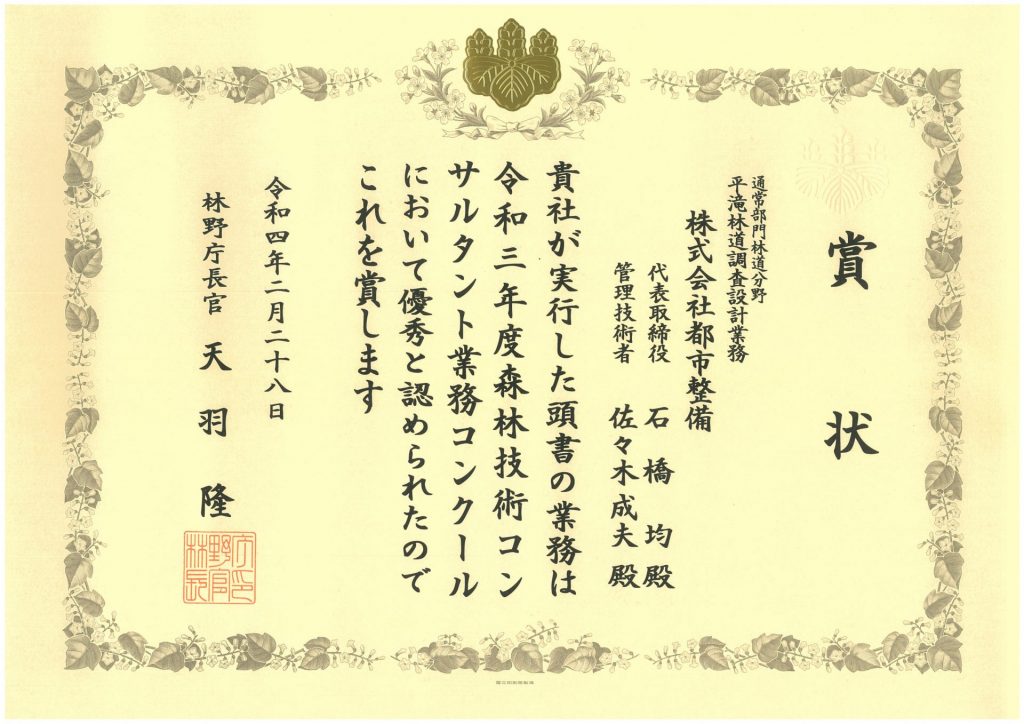 賞状
通常部門林道分野
平滝林道調査設計業務
株式会社都市整備
代表取締役 石橋均殿
管理技術者 佐々木成夫殿
貴社が実行した頭書の業務は
令和三年度森林技術コン
サルタント業務コンクール
において優秀と認められたので
これを賞します
令和四年二月二十八日
林野庁長官 天羽隆